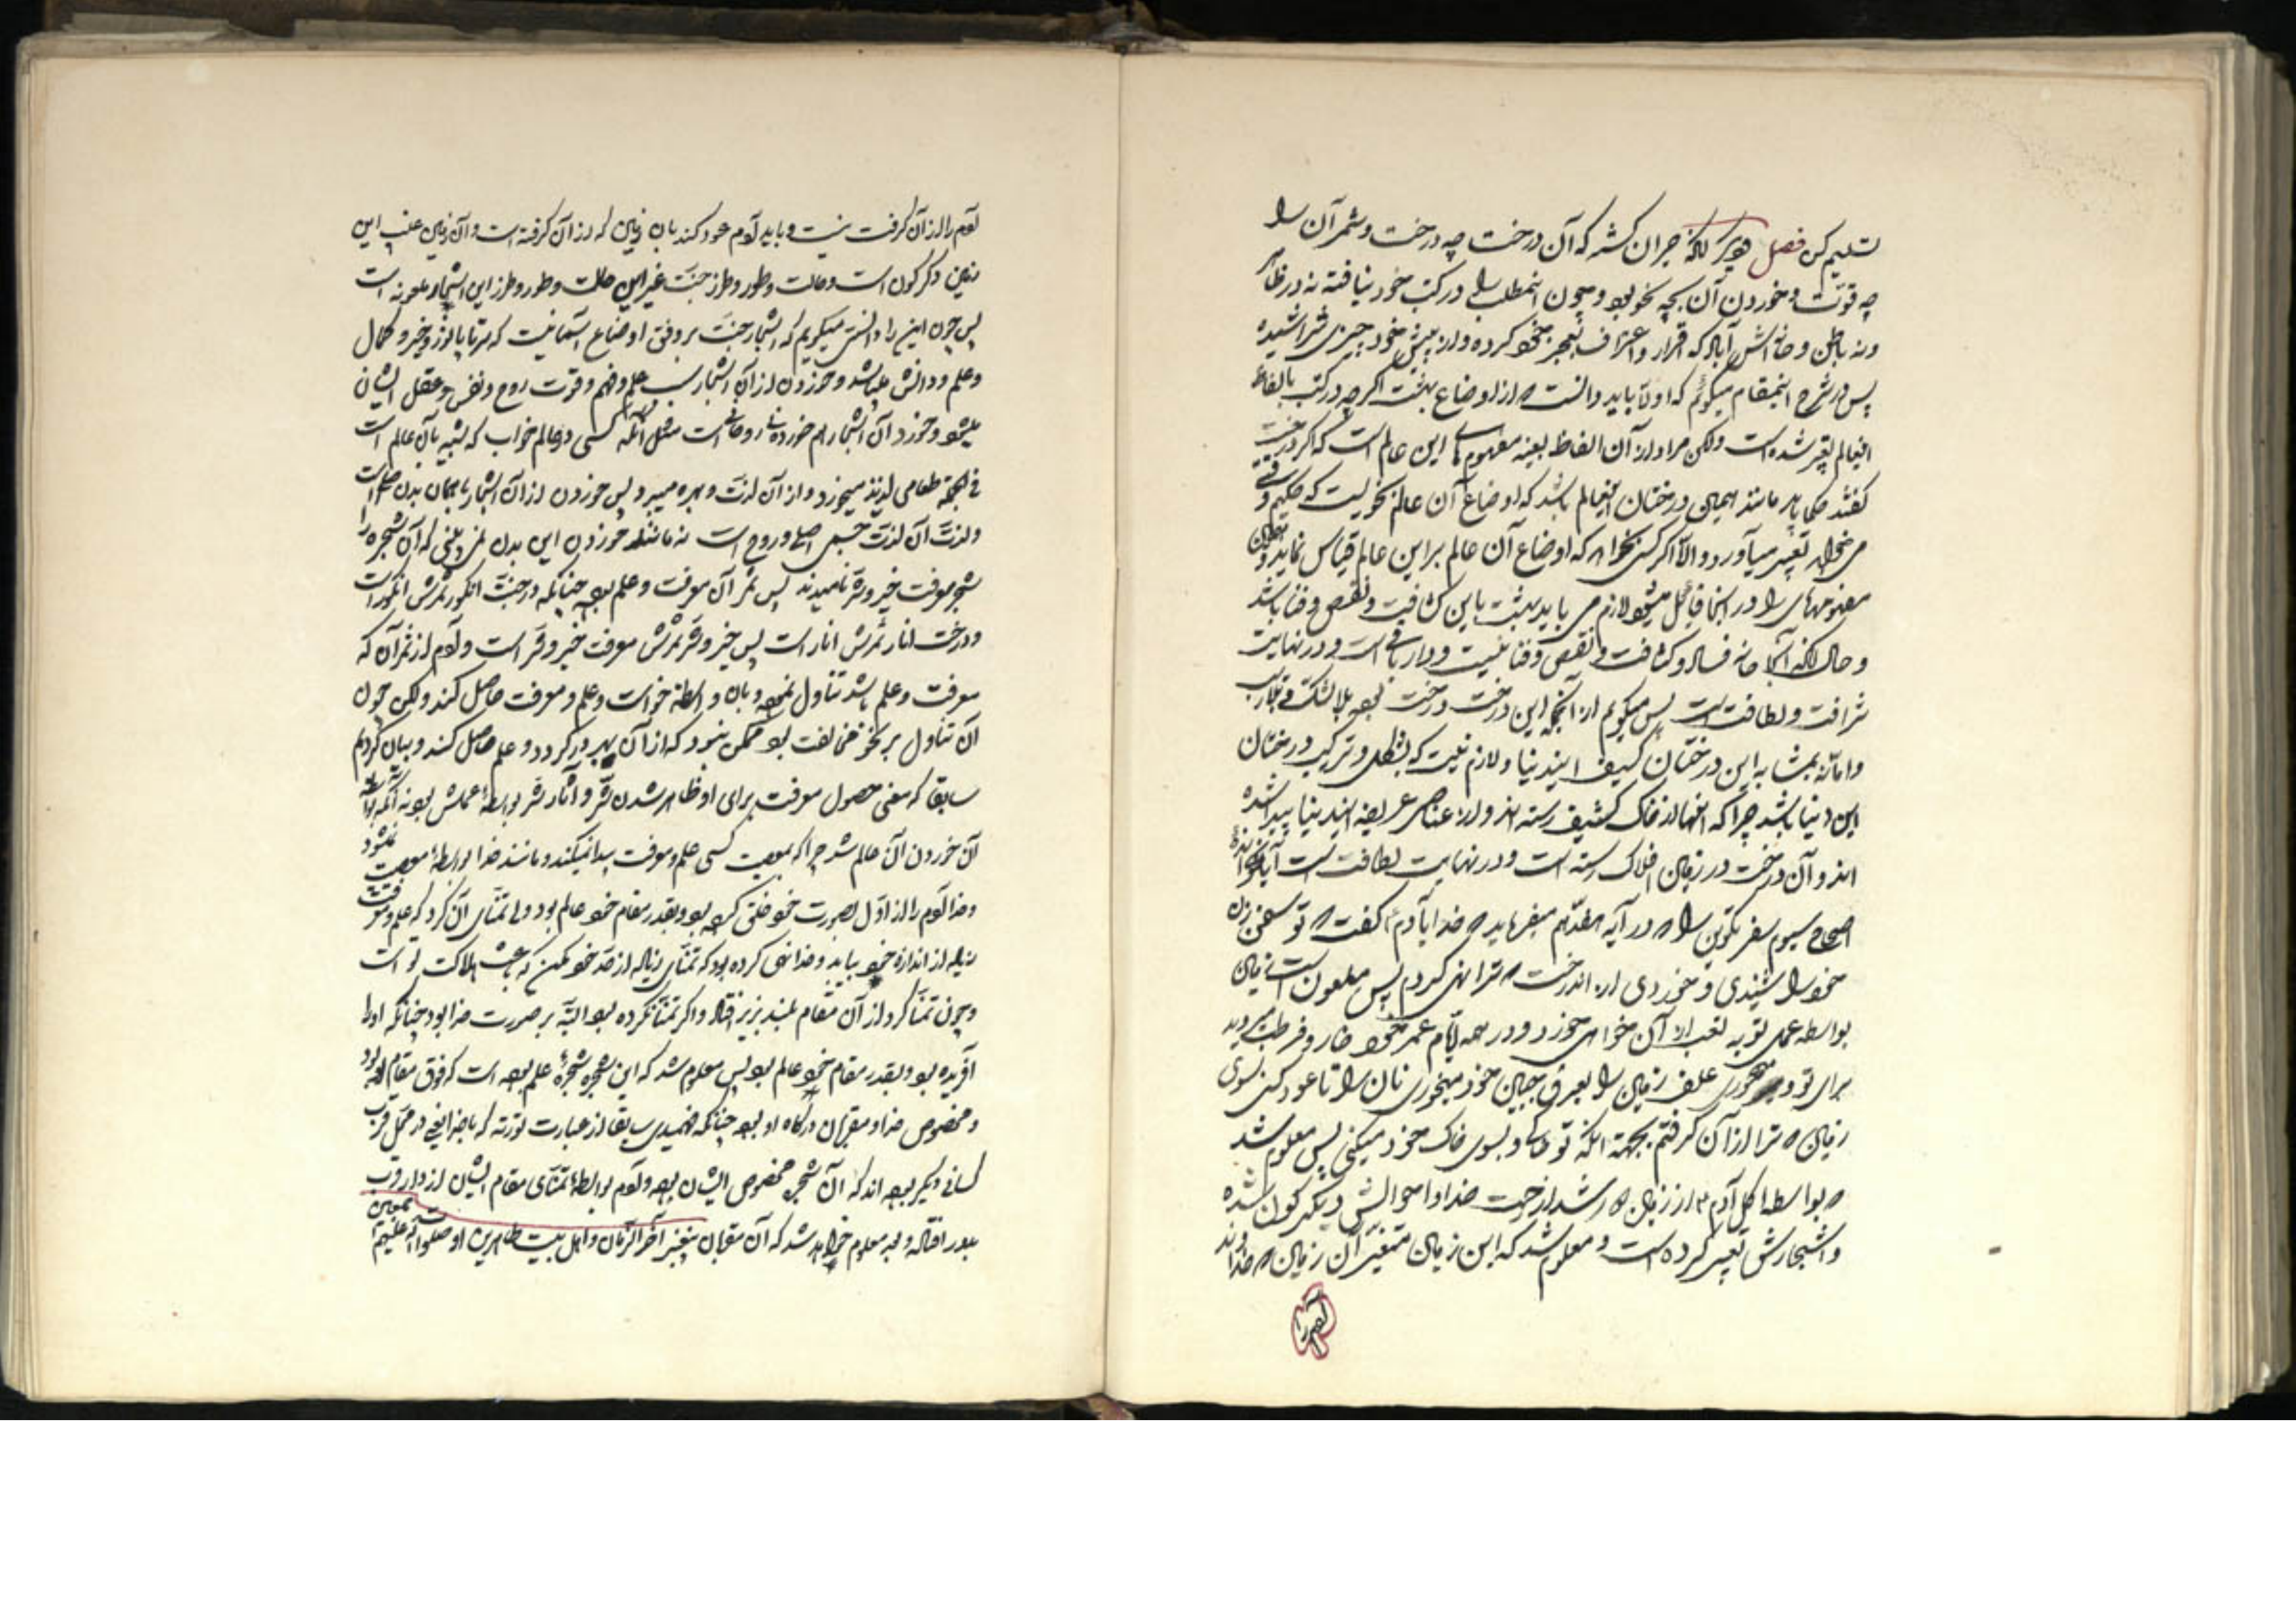 تسلیم کن فصل حیران کشته که آن درخت چه درخت و ثمر آن را
چه قوّت و خوردن آن بچه نحو بود و چون اینمطلب را در کتب خود نیافته نه در ظاهر
و نه باطن و خانه اش آباد که اقرار و اعتراف بعجز خود کرده و از پیش خود چیزی نتراشیده
پس در شرح اینمقام میگوئم که اولا باید دانست که از اوضاع بهشت اگر چه در کتب بالفاظ
اینعالم تعبیر شده است ولکن مراد از آن الفاظ بعینه مفهومهای این عالم است که اگر درخت
گفتند مانند همین درختان اینعالم باشد که اوضاع آن عالم نحویست که حکیم
می خواهد تعبیر میآورد و الّا اگر کسی بخواهد که اوضاع آن عالم بر این عالم قیاس نماید و
مفهومهای را در اینجا قائل میشود لازم می آید بهشت باین کثافت و نقص و فنا باشد
و حال آنکه آنجا خانه فساد و کثافت و نقص و فنا نیست و دار باقی است و در نهایت
شرافت و لطافت است پس میگویم از آنکه این درخت درخت بود بلا شک
و امّا نه بمشابه این درختان کثیف ایندنیا و لازم نیست که بشکل و ترکیب درختان
این دنیا باشد چرا که اینها از خاک کثیف رسته اند و از عناصر ایندنیا پیدا شده
اند و آن درخت در زمین افلاک رسته است و در نهایت لطافت است آیا نخوانده
اصحاح سیوم سفر تکوین را که در آیه هفدهم میفرماید که خدا بآدم گفت که تو سخن زن
خود را شنیدی و خوردی از آندرخت که ترا نهی کردم پس ملعون است زمین
بواسطه عمل تو به تعب از آن خواهی خورد و در همه ایّام عمر خود خار و
برای تو و میخوری علف زمین را بعرق جبین خود میخوری نان را تا عود کنی بسوی
زمین که ترا از آن گرفتم بجهة آنکه تو خاکی و بسوی خاک خود میکنی پس معلوم شد
که بواسطه اکل آدم از زمین که دور شد از رحمت خدا و احوالش دیگرگون شده
و اشجارش تغییر کرده است و معلوم شد که این زمین متغیّر آن زمین که خداوند
آدم را
آدم را از آن گرفت نیست و باید آدم عود کند بان زمین که از آن گرفته است و آن زمین عقب این
زمین دگرگون است و حالت و طور و طرز جنّت غیر این حالت و طور و طرز این اشجار ملعونه است
پس چون این را دانستی میگویم که اشجار جنّت بر وفق اوضاع آسمانیست که سرتا پا نور و خیر و کمال
و علم و دانش میباشد و خوردن از آن اشجار سبب علم و فهم و قوّت روح و نفس و عقل ایشان
میشود و خورد آن اشجار هم خوردن روحانی است مثل آنکه کسی در عالم خواب که شبیه بآن عالم است
فی الجمله طعامی لذیذ میخورد و از آن لذّت و بهره میبرد پس خوردن از آن اشجار با همان بدن اصلی است
و لذّت آن لذّت جسم اصلی و روح است نه مانند خوردن این بدن و یعنی که آن شجره را
شجر معرفت خیر و شرّ نامیدند پس ثمر آن معرفت و علم بود چنانکه درخت انگور ثمرش انگور است
و درخت انار ثمرش انار است پس خیر و شرّ ثمرش معرفت خیر و شرّ است و آدم از ثمر آن که
معرفت و علم باشد تناول نمود و بآن واسطه خواست و علم و معرفت حاصل کند ولکن چون
آن تناول بر نحو مخالفت بود ممکن نبود که از آن بهره ور گردد و علم حاصل کند و بیان کردیم
سابقا که معنی حصول معرفت برای او ظاهر شدن شرّ و آثار شرّ بواسطه عملش بود نه آنکه بواسطه
آن خوردن آن عالم شد چرا که بمعصیت کسی علم و معرفت پیدا نمیکند و مانند خدا بواسطه معصیت نمیشود
و خدا آدم را از اوّل بصورت خود خلق کرده بود و بقدر مقام خود عالم بود ولی تمنّای آن کرد که علم و معرفت
زیاده از اندازه خود بیابد و خدا نهی کرده بود که تمنّای زیاده از حدّ خود مکن که باعث هلاکت تو است
و چون تمنّا کرد از آن مقام بلند بزیر افتاد و اگر تمنّا نکرده بود البتّه بر صورت خدا بود چنانکه او را
آفریده بود و بقدر مقام خود عالم بود پس معلوم شد که این شجره شجره علم بوده است که فوق مقام او بود
و مخصوص خدا و مقربان درگاه او بود چنانکه فهمیدی سابقا از عبارت توریة که در محلّ قرب
کسانی دیگر بوده اند که آن شجره مخصوص ایشان بود و آدم بواسطه تمنّای مقام ایشان از دار قرب
بدور افتاد و بعد معلوم خواهد شد که آن مقربان پیغمبر آخر الزّمان و اهل بیت طاهرین او صلوات الله علیهم